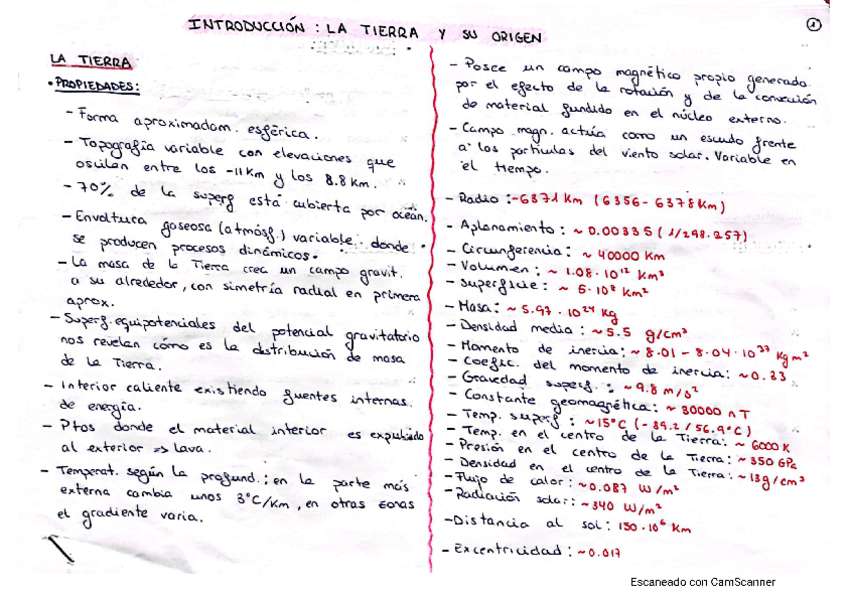 INTRODUCCIÓN : LA TIERRA Y SU ORIGEN
1
LA TIERRA
• PROPIEDADES:
- Forma aproximadam. esférica.
- Topografía variable con elevaciones que
oscilan entre los -11 Km y los 8.8 Km.
- 70% de la superf está cubierta por océan.
- Envoltura gaseosa (atmósf.) variable donde
se producen procesos dinámicos.
- La masa de la Tierra crea un campo gravit.
a su alrededor, con simetría radial en primera
aprox.
- Superf. equipotenciales del potencial gravitatorio
nos revelan cómo es la distribución de masa
de la Tierra.
- Interior caliente existiendo fuentes internas
de energía.
- Ptos donde el material interior es expulsado
al exterior => lava.
- Temperat. según la profund.: en la parte más
externa cambia unos 3°C/Km, en otras zonas
el gradiente varia.
- Posee un campo magnético propio generado
por el efecto de la rotación y de la convección
de material fundido en el núcleo externo.
- Campo magn. actúa como un escudo frente
a los partículas del viento solar. Variable en
el tiempo.
- Radio : ~6371 Km (6356 - 6378 Km)
- Aplanamiento : ~ 0.00335 (1/298.257)
- Circunferencia : ~ 40000 Km
- Volumen : ~ 1.08 · 10¹² Km³
- Superficie : ~ 5·10⁸ Km²
- Masa : ~ 5.97 · 10²⁴ Kg
- Densidad media : ~ 5.5 g/cm³
- Momento de inercia : ~ 8.01 - 8.04 · 10³⁷ Kg m²
- Coefic. del momento de inercia : ~0.33
- Gravedad superf. : ~ 9.8 m/s²
- Constante geomagnética : ~ 30000 nT
- Temp. superf : ~15°C (-89.2 / 56.9°C)
- Temp. en el centro de la Tierra : ~ 6000 K
- Presión en el centro de la Tierra : ~ 350 GPa
- Densidad en el centro de la Tierra : ~ 13 g/cm³
- Flujo de calor : ~0.087 W/m²
- Radiación solar : ~340 W/m²
- Distancia al sol : 150·10⁶ Km
- Excentricidad : ~0.017
Escaneado con CamScanner